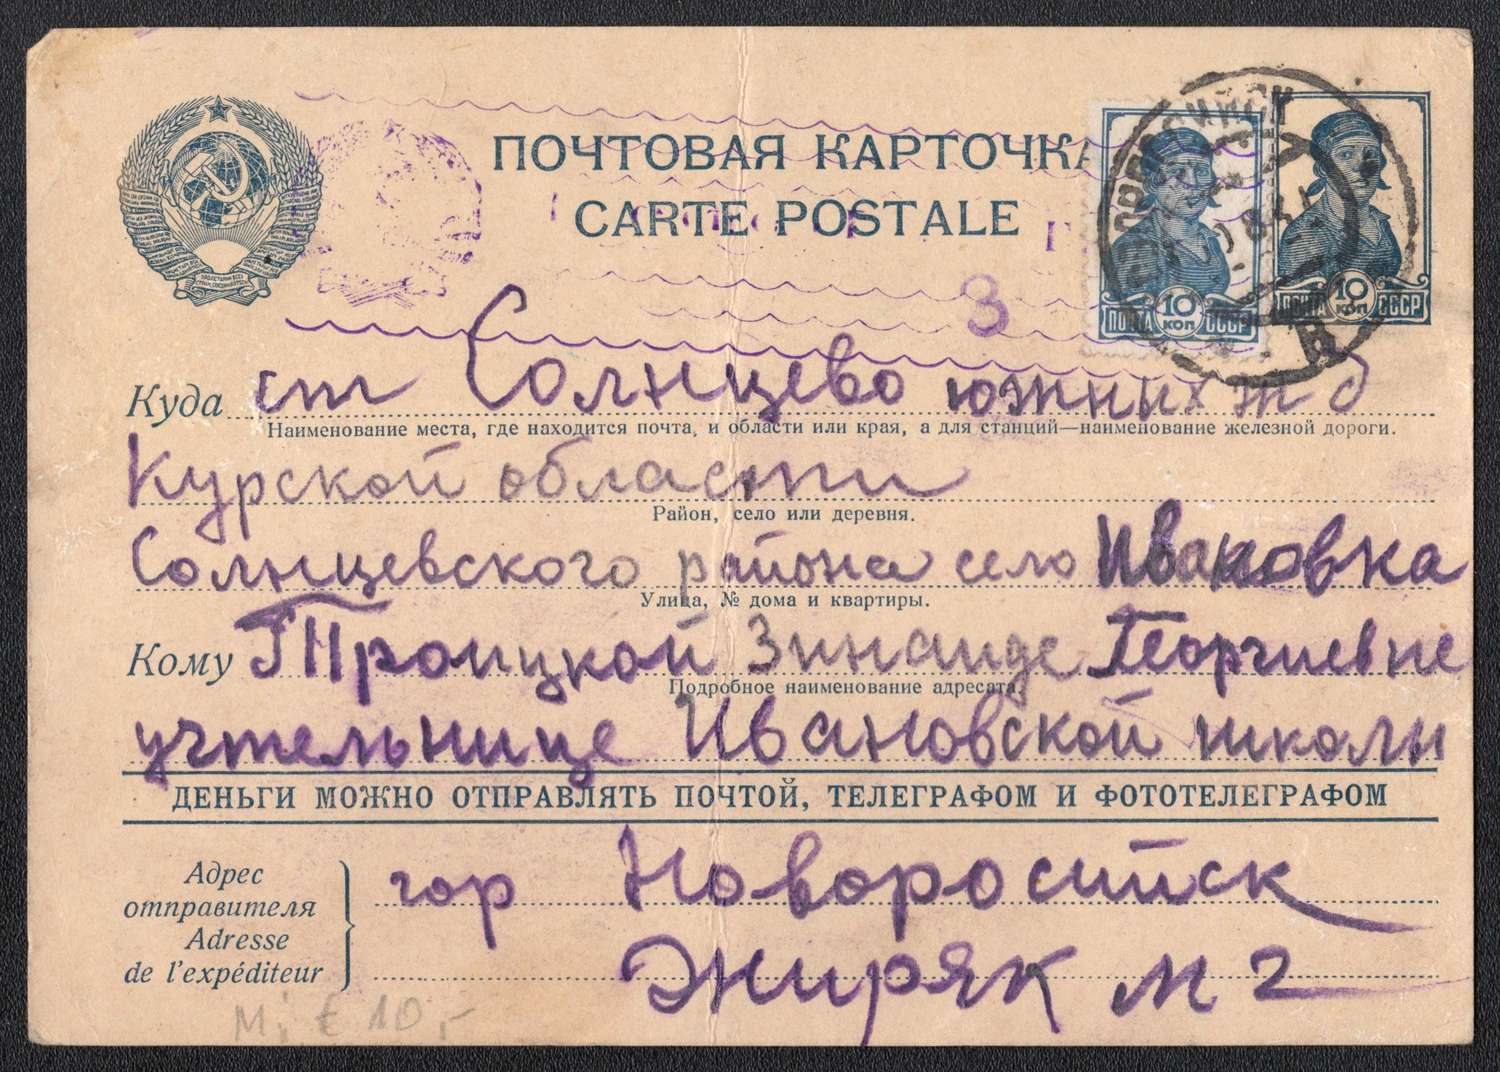 ПОЧТОВАЯ КАРТОЧКА
CARTE POSTALE
НОВОРОССИЙСК
ПОЧТА 10 КОП СССР
ПОЧТА 10 КОП СССР
3
Куда ст Солнцево южных ж д
Наименование места, где находится почта, и области или края, а для станций—наименование железной дороги.
Курской области
Район, село или деревня.
Солнцевского района село Ивановка
Улица, № дома и квартиры.
Кому Троицкой Зинаиде Георгиевне
Подробное наименование адресата.
учтельнице Ивановской школы
ДЕНЬГИ МОЖНО ОТПРАВЛЯТЬ ПОЧТОЙ, ТЕЛЕГРАФОМ И ФОТОТЕЛЕГРАФОМ
Адрес
отправителя
Adresse
de l'expéditeur
гор Новоросийск
Жиряк М 2
М; € 10,-